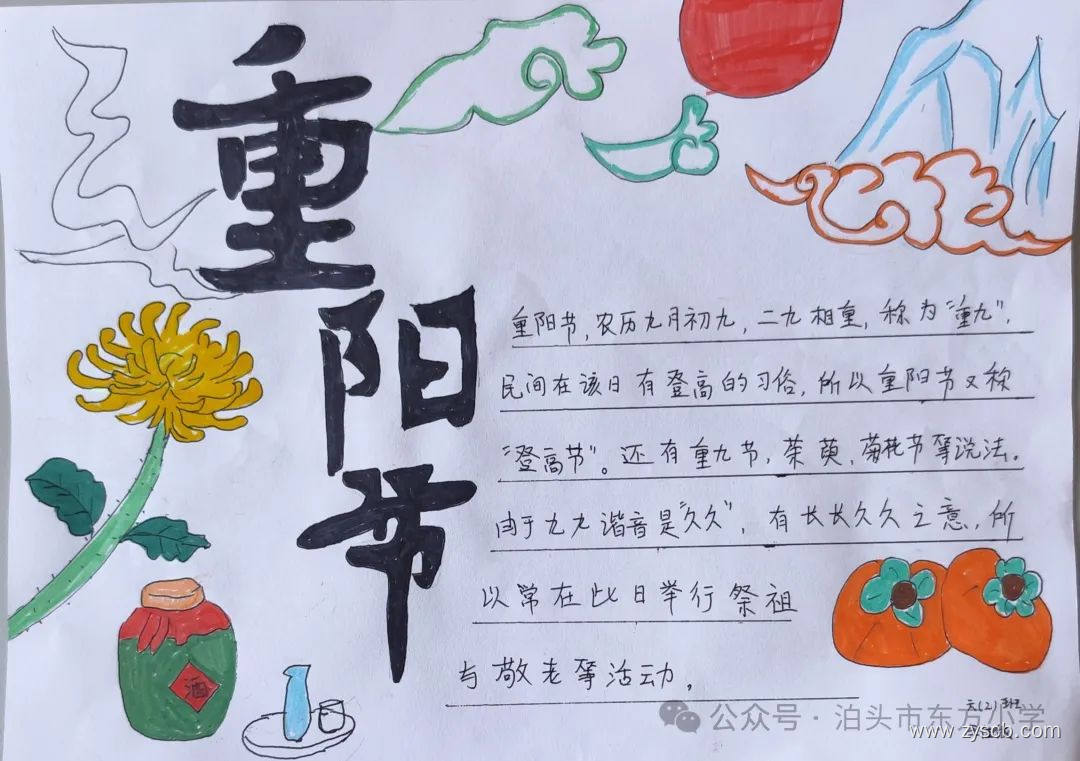 重阳节
重阳节,农历九月初九,二九相重,称为“重九”.
民间在该日有登高的习俗,所以重阳节又称
“登高节”。还有重九节,茱萸、菊花节等说法。
由于九九谐音是“久久”,有长长久久之意,所
以常在此日举行祭祖
与敬老等活动,
酒
六(2)班
公众号·泊头市东方小学
www.zyscb.com